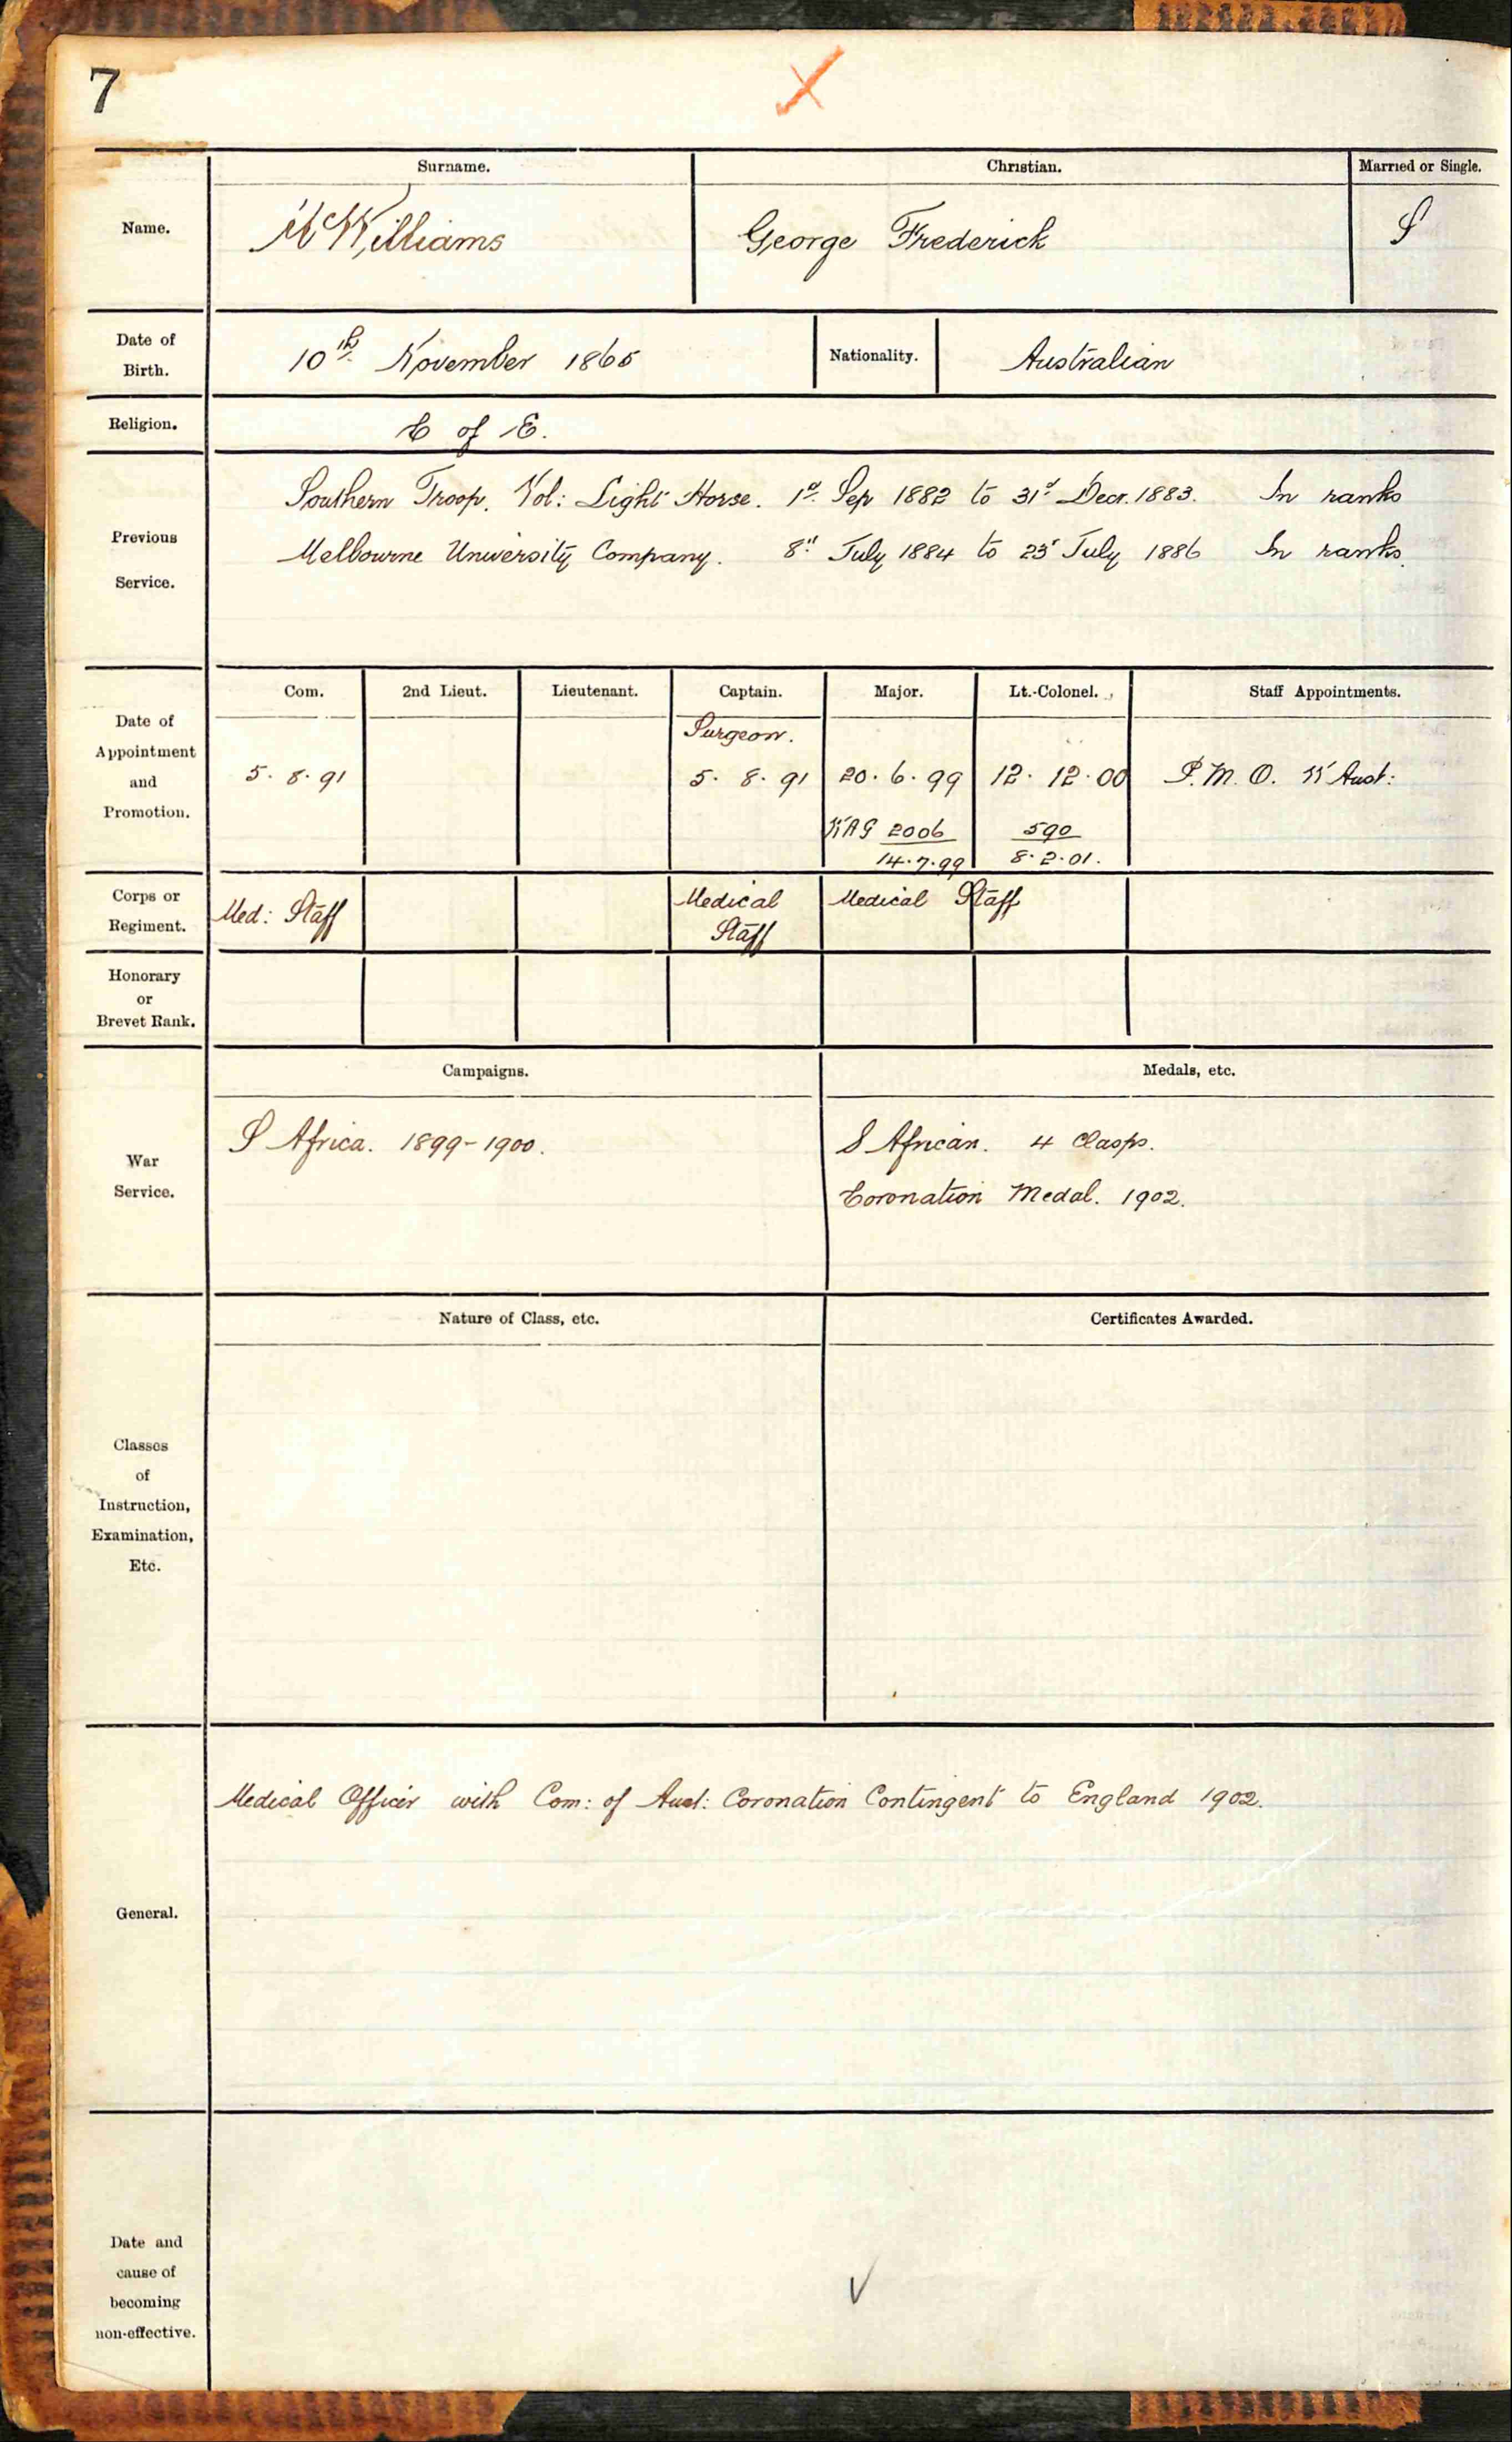 7
Surname. Christian. Married or Single.
Name. McWilliams George Frederick S
Date of
Birth. 10th November 1865 Nationality. Australian
Religion. C of E.
Southern Troop. Vol: Light Horse. 1st Sep 1882 to 31st Decr. 1883. In ranks
Previous
Melbourne University Company. 8th July 1884 to 25th July 1886 In ranks.
Service.
Com. 2nd Lieut. Lieutenant. Captain. Major. Lt.-Colonel. Staff Appointments.
Date of
Appointment
and
Promotion.
Surgeon.
5.8.91 5.8.91 20.6.99 12.12.00 P.M.O. W Aust:
WAG 2006 590
14.7.99 8.2.01.
Corps or
Regiment.
Med: Staff Medical Staff Medical Staff
Honorary
or
Brevet Rank.
Campaigns. Medals, etc.
War
Service.
S Africa. 1899-1900. S African. 4 Clasps.
Coronation Medal. 1902.
Nature of Class, etc. Certificates Awarded.
Classes
of
Instruction,
Examination,
Etc.
Medical Officer with Com: of Aust: Coronation Contingent to England 1902.
General.
Date and
cause of
becoming
non-effective.